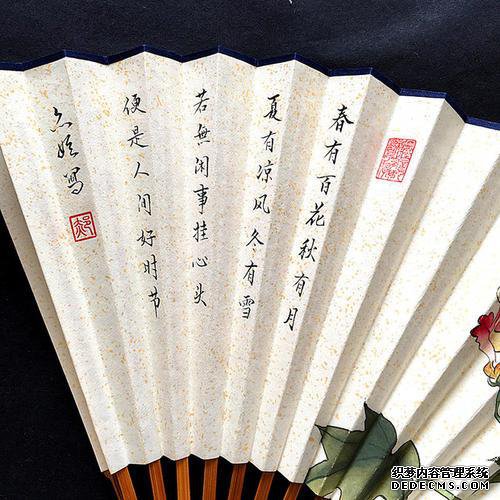 春有百花秋有月
夏有凉风冬有雪
若無闲事挂心头
便是人间好时节
织梦内容管理系统
DEDECMS.COM